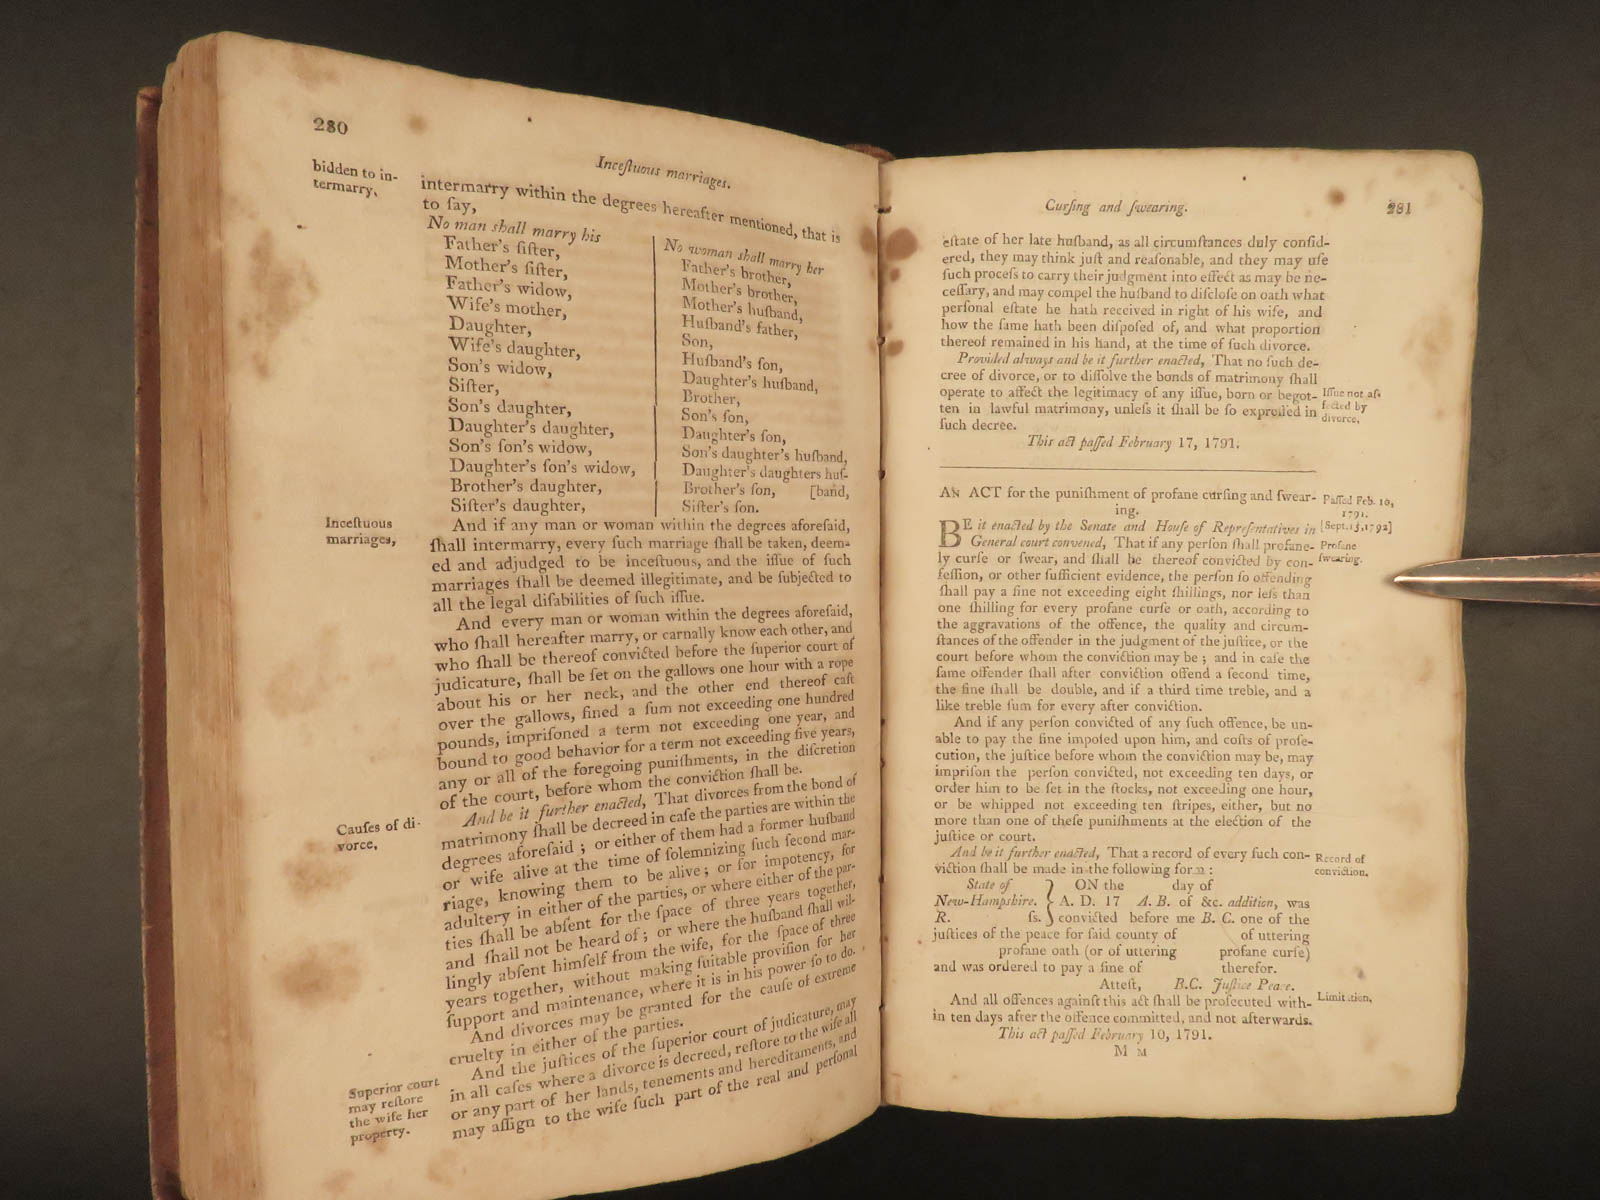 280
Inceſtuous marriages.
bidden to in-
termarry,
intermarry within the degrees hereafter mentioned, that is
to ſay,
No man shall marry his
Father's ſiſter,
Mother's ſiſter,
Father's widow,
Wife's mother,
Daughter,
Wife's daughter,
Son's widow,
Siſter,
Son's daughter,
Daughter's daughter,
Son's ſon's widow,
Daughter's ſon's widow,
Brother's daughter,
Siſter's daughter,
No woman shall marry her
Father's brother,
Mother's brother,
Mother's huſband,
Huſband's father,
Son,
Huſband's ſon,
Daughter's huſband,
Brother,
Son's ſon,
Daughter's ſon,
Son's daughter's huſband,
Daughter's daughters huſ-
Brother's ſon, [band,
Siſter's ſon.
Inceſtuous
marriages,
And if any man or woman within the degrees aforeſaid,
ſhall intermarry, every ſuch marriage ſhall be taken, deem-
ed and adjudged to be inceſtuous, and the iſſue of ſuch
marriages ſhall be deemed illegitimate, and be ſubjected to
all the legal diſabilities of ſuch iſſue.
And every man or woman within the degrees aforeſaid,
who ſhall hereafter marry, or carnally know each other, and
who ſhall be thereof convicted before the ſuperior court of
judicature, ſhall be ſet on the gallows one hour with a rope
about his or her neck, and the other end thereof caſt
over the gallows, fined a ſum not exceeding one hundred
pounds, impriſoned a term not exceeding one year, and
bound to good behavior for a term not exceeding five years,
any or all of the foregoing puniſhments, in the diſcretion
of the court, before whom the conviction ſhall be.
Cauſes of di-
vorce,
And be it further enacted, That divorces from the bond of
matrimony ſhall be decreed in caſe the parties are within the
degrees aforeſaid ; or either of them had a former huſband
or wife alive at the time of ſolemnizing ſuch ſecond mar-
riage, knowing them to be alive ; or for impotency, for
adultery in either of the parties, or where either of the par-
ties ſhall be abſent for the ſpace of three years together,
and ſhall not be heard of ; or where the huſband ſhall wil-
lingly abſent himſelf from the wife, for the ſpace of three
years together, without making ſuitable proviſion for her
ſupport and maintenance, where it is in his power ſo to do.
And divorces may be granted for the cauſe of extreme
cruelty in either of the parties.
Superior court
may reſtore
the wife her
property.
And the juſtices of the ſuperior court of judicature, may
in all caſes where a divorce is decreed, reſtore to the wife all
or any part of her lands, tenements and hereditaments, and
may aſſign to the wife ſuch part of the real and perſonal
Curſing and ſwearing.
281
eſtate of her late huſband, as all circumſtances duly conſid-
ered, they may think juſt and reaſonable, and they may uſe
ſuch proceſs to carry their judgment into effect as may be ne-
ceſſary, and may compel the huſband to diſcloſe on oath what
perſonal eſtate he hath received in right of his wife, and
how the ſame hath been diſpoſed of, and what proportion
thereof remained in his hand, at the time of ſuch divorce.
Provided always and be it further enacted, That no ſuch de-
cree of divorce, or to diſſolve the bonds of matrimony ſhall
operate to affect the legitimacy of any iſſue, born or begot-
ten in lawful matrimony, unleſs it ſhall be ſo expreſſed in
ſuch decree.
Iſſue not af-
fected by
divorce.
This act paſſed February 17, 1791.
AN ACT for the puniſhment of profane curſing and ſwear-
ing.
Paſſed Feb. 10,
1791.
[Sept. 15, 1792]
Profane
ſwearing.
BE it enacted by the Senate and Houſe of Repreſentatives in
General court convened, That if any perſon ſhall profane-
ly curſe or ſwear, and ſhall be thereof convicted by con-
feſſion, or other ſufficient evidence, the perſon ſo offending
ſhall pay a fine not exceeding eight ſhillings, nor leſs than
one ſhilling for every profane curſe or oath, according to
the aggravations of the offence, the quality and circum-
ſtances of the offender in the judgment of the juſtice, or the
court before whom the conviction may be ; and in caſe the
ſame offender ſhall after conviction offend a ſecond time,
the fine ſhall be double, and if a third time treble, and a
like treble ſum for every after conviction.
And if any perſon convicted of any ſuch offence, be un-
able to pay the fine impoſed upon him, and coſts of proſe-
cution, the juſtice before whom the conviction may be, may
impriſon the perſon convicted, not exceeding ten days, or
order him to be ſet in the ſtocks, not exceeding one hour,
or be whipped not exceeding ten ſtripes, either, but no
more than one of theſe puniſhments at the election of the
juſtice or court.
And be it further enacted, That a record of every ſuch con-
viction ſhall be made in the following form :
Record of
conviction.
State of } ON the day of
New-Hampſhire. A. D. 17 A. B. of &c. addition, was
R. ſs. convicted before me B. C. one of the
juſtices of the peace for ſaid county of of uttering
profane oath (or of uttering profane curſe)
and was ordered to pay a fine of therefor.
Atteſt, B.C. Juſtice Peace.
And all offences againſt this act ſhall be proſecuted with-
in ten days after the offence committed, and not afterwards.
Limitation.
This act paſſed February 10, 1791.
M M